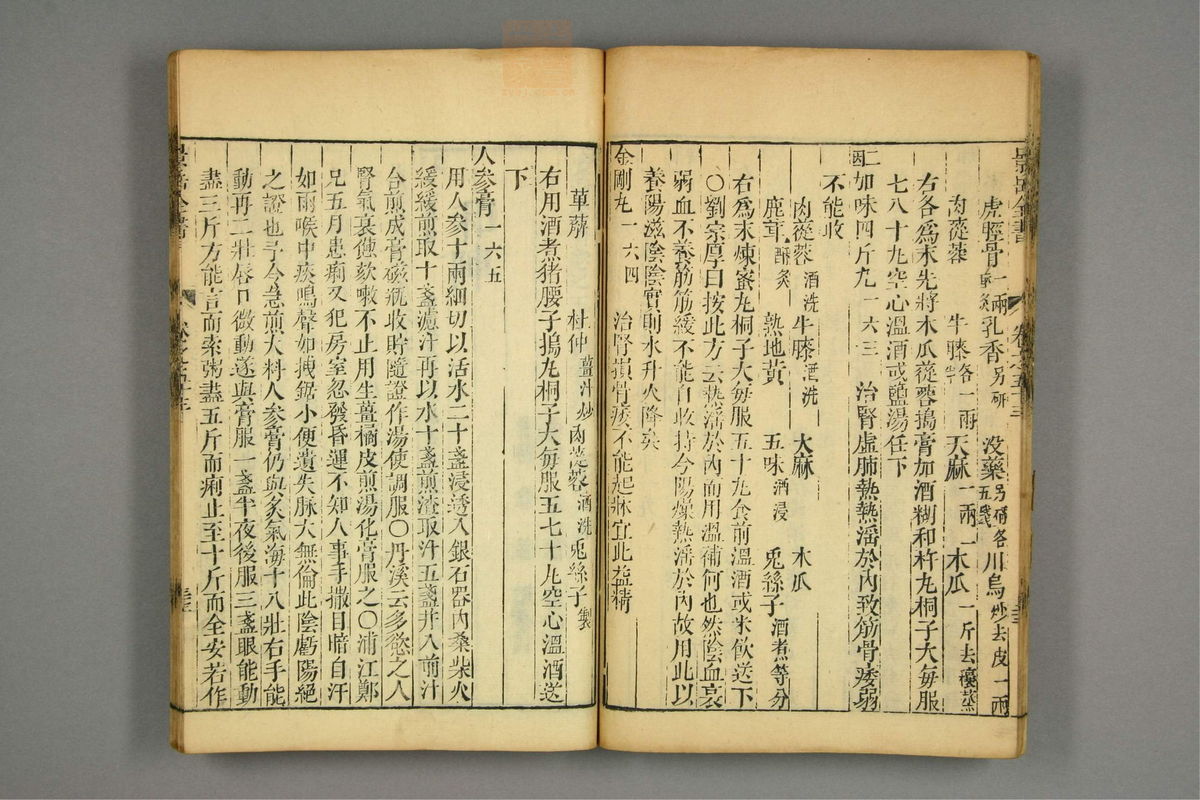 虎脛骨一兩酥炙乳香另研沒藥另研各五錢川烏炒去皮一兩
肉蓯蓉牛膝各一兩天麻一兩木瓜一斤去穰蒸
右各爲末先將木瓜蓯蓉搗膏加酒糊和杵丸桐子大每服
七八十丸空心溫酒或鹽湯任下
因一加味四斤丸一六三治腎虛肺熱熱淫於內致筋骨痿弱
不能收
肉蓯蓉酒洗牛膝酒洗天麻木瓜
鹿茸酥炙熟地黃五味酒浸兎絲子酒煮等分
右爲末煉蜜丸桐子大每服五十丸食前溫酒或米飲送下
〇劉宗厚曰按此方云熱淫於內而用溫補何也然陰血衰
弱血不養筋筋緩不能自收持今陽燥熱淫於內故用此以
養陽滋陰陰實則水升火降矣
金剛丸一六四治腎損骨痿不能起牀宜此益精
萆薢杜仲薑汁炒肉蓯蓉酒洗兎絲子製
右用酒煮猪腰子搗丸桐子大每服五七十丸空心溫酒送
下
人參膏一六五
用人參十兩細切以活水二十盞浸透入銀石器內桑柴火
緩緩煎取十盞濾汁再以水十盞煎渣取汁五盞并入前汁
合煎成膏磁瓶收貯隨證作湯使調服〇丹溪云多慾之人
腎氣衰憊欬嗽不止用生薑橘皮煎湯化膏服之〇浦江鄭
兄五月患痢又犯房室忽發昏運不知人事手撒目暗自汗
如雨喉中痰鳴聲如拽鋸小便遺失脉大無倫此陰虧陽絕
之證也予令急煎大料人參膏仍與炙氣海十八壯右手能
動再二壯唇口微動遂與膏服一盞半夜後服三盞眼能動
盡三斤方能言而索粥盡五斤而痢止至十斤而全安若作